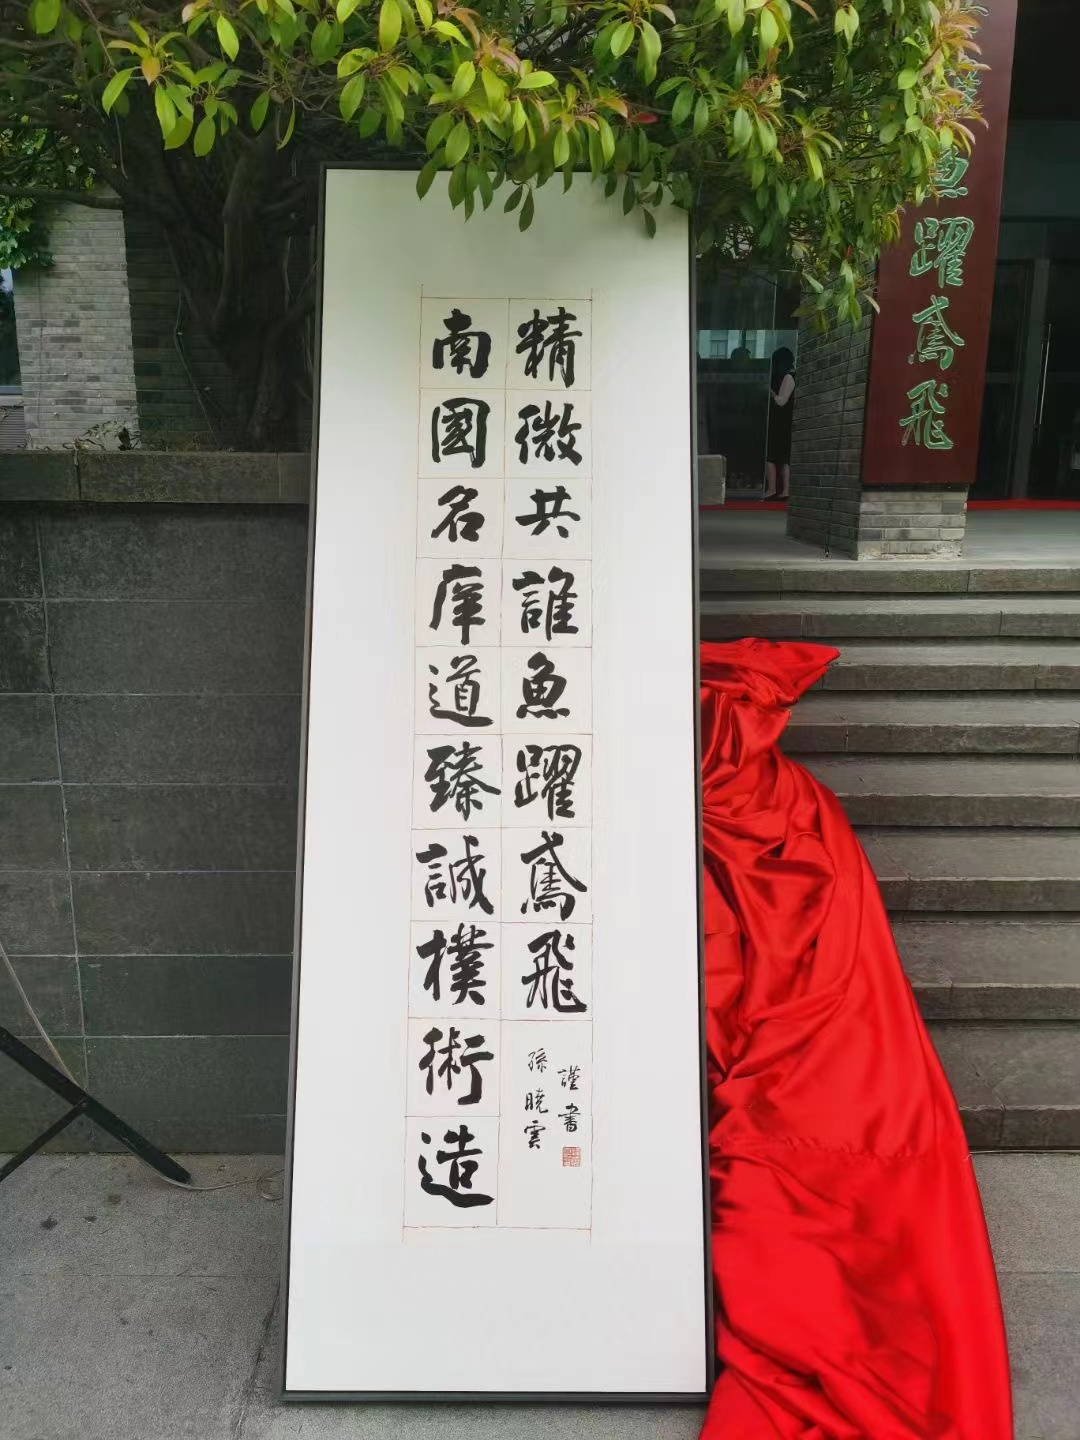 南國名庠道臻誠樸術造
精微共誰魚躍鳶飛
孫曉雲
謹書
魚躍鳶飛